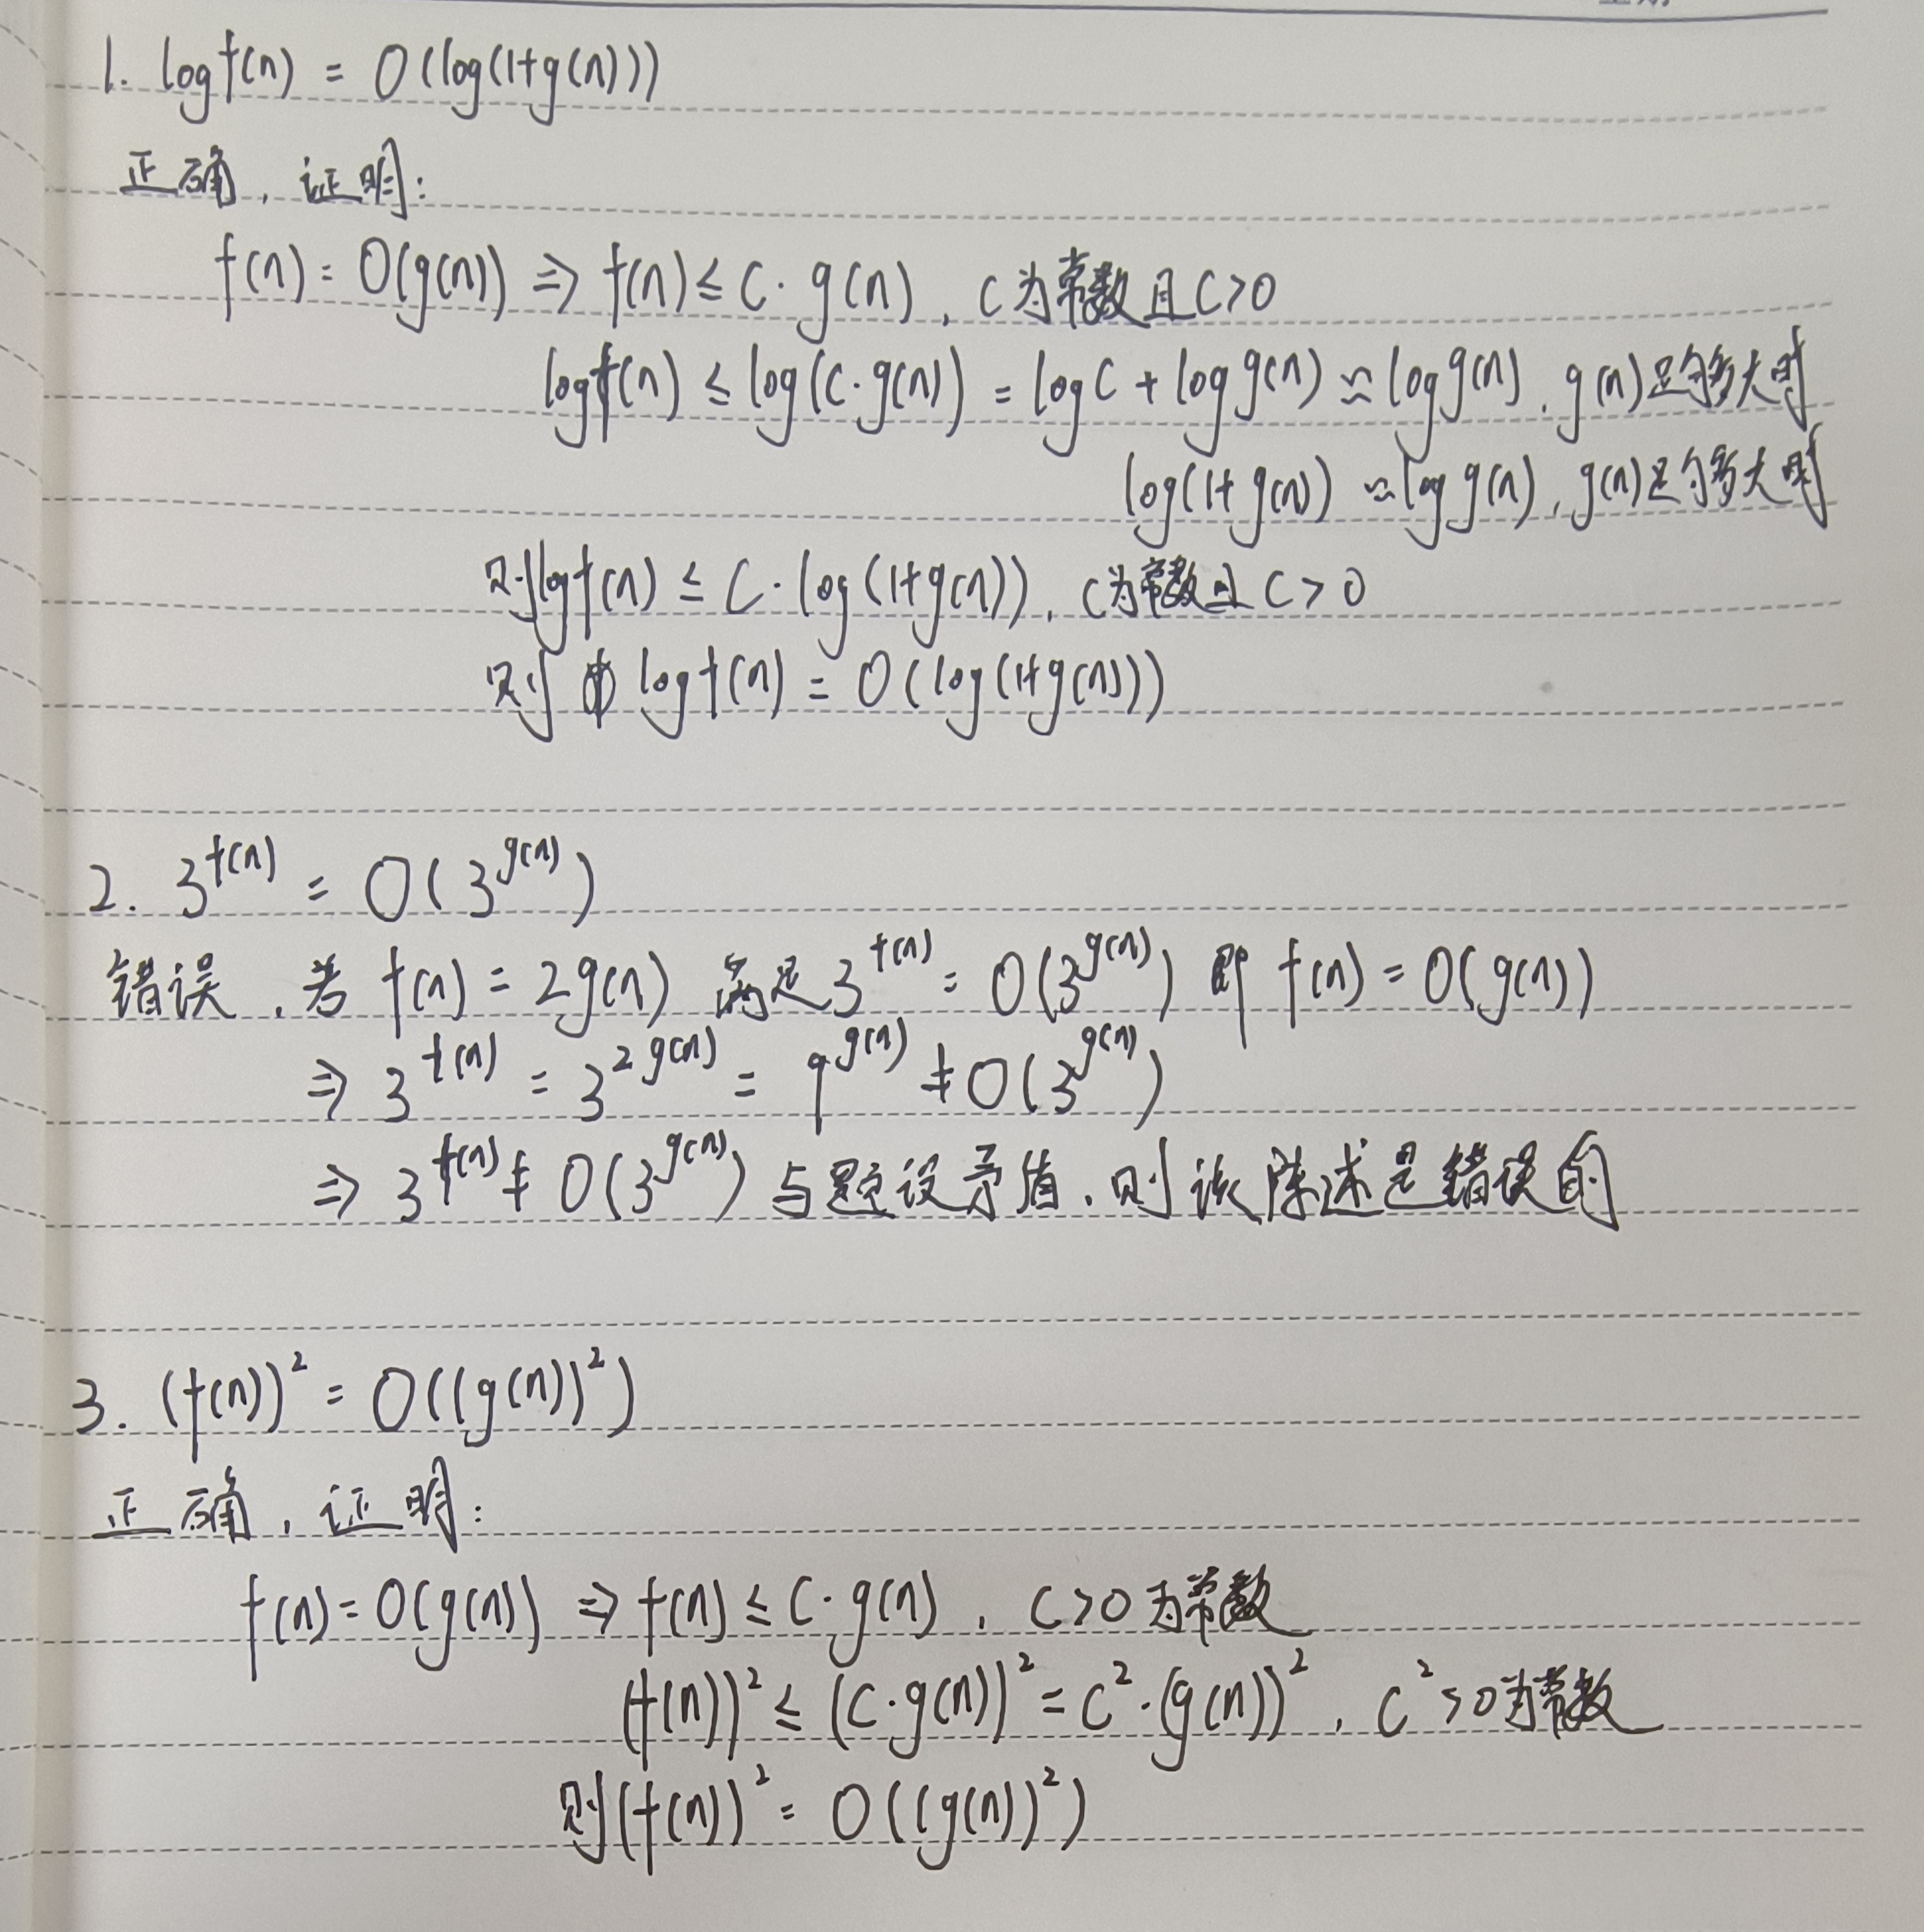 1. logf(n) = O(log(1+g(n)))
正确，证明：
f(n) = O(g(n)) ⇒ f(n) ≤ C · g(n)，C为常数且C>0
logf(n) ≤ log(C·g(n)) = logC + log g(n) ≈ log g(n)，g(n)足够大时
log(1+g(n)) ≈ log g(n)，g(n)足够大时
则logf(n) ≤ C · log(1+g(n))，C为常数且C>0
则 logf(n) = O(log(1+g(n)))
2. 3^{f(n)} = O(3^{g(n)})
错误，若 f(n) = 2g(n) 满足 3^{f(n)} = O(3^{g(n)}) 即 f(n) = O(g(n))
⇒ 3^{f(n)} = 3^{2g(n)} = 9^{g(n)} ≠ O(3^{g(n)})
⇒ 3^{f(n)} ≠ O(3^{g(n)}) 与题设矛盾，则该陈述是错误的
3. (f(n))² = O((g(n))²)
正确，证明：
f(n) = O(g(n)) ⇒ f(n) ≤ C · g(n)，C>0为常数
(f(n))² ≤ (C·g(n))² = C²·(g(n))²，C²>0为常数
则(f(n))² = O((g(n))²)